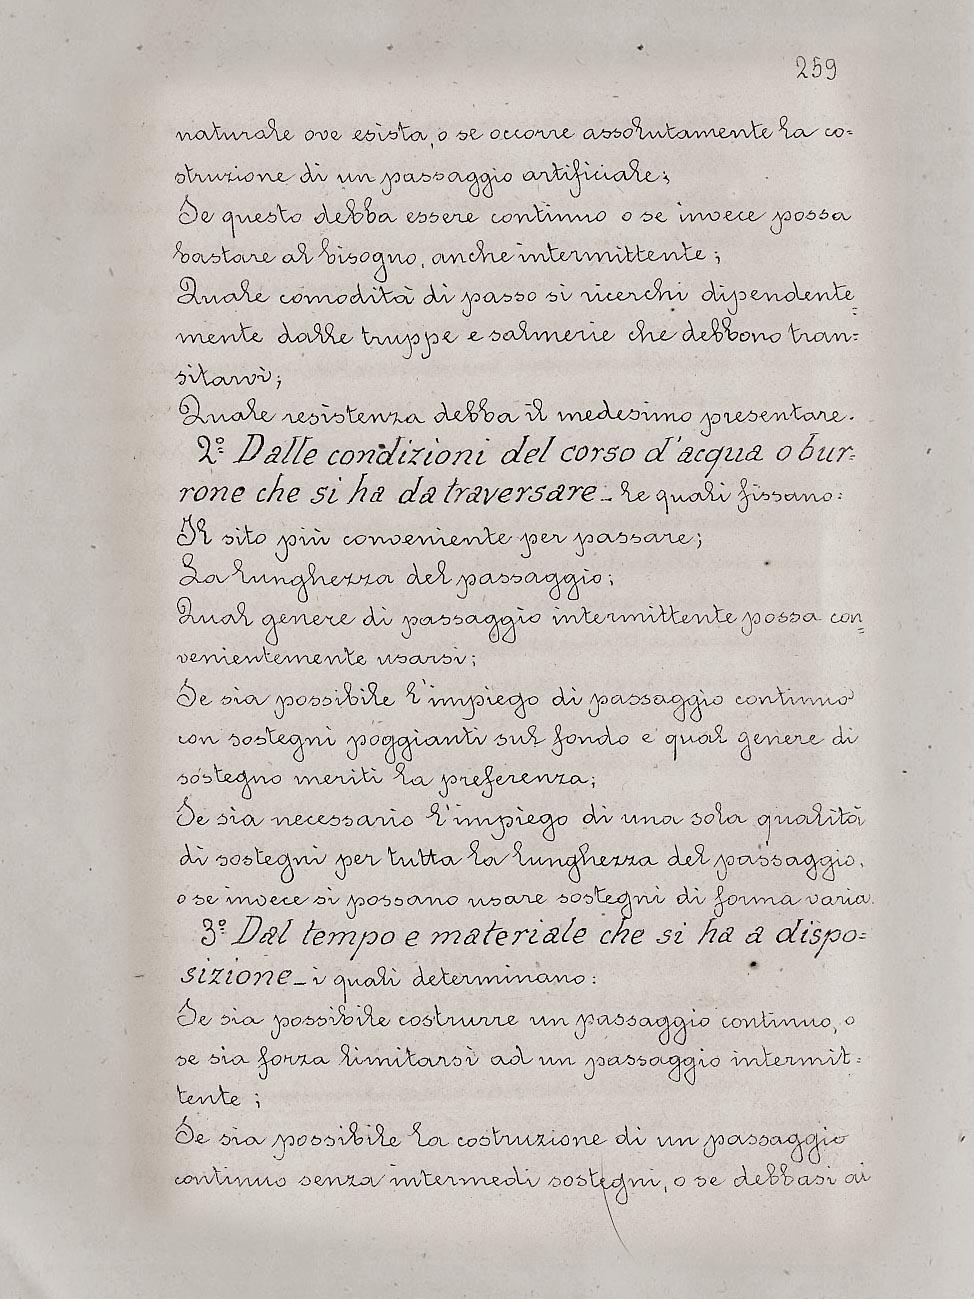 259
naturale ove esista, o se occorre assolutamente la co=
struzione di un passaggio artificiale;
Se questo debba essere continuo o se invece possa
bastare al bisogno, anche intermittente;
Quale comodità di passo si ricerchi dipendente=
mente dalle truppe e salmerie che debbono tran=
sitarvi;
Quale resistenza debba il medesimo presentare.
2º Dalle condizioni del corso d'acqua o bur=
rone che si ha da traversare _ le quali fissano:
Il sito più conveniente per passare;
La lunghezza del passaggio;
Qual genere di passaggio intermittente possa con=
venientemente usarsi;
Se sia possibile l'impiego di passaggio continuo
con sostegni poggianti sul fondo e qual genere di
sostegno meriti la preferenza;
Se sia necessario l'impiego di una sola qualità
di sostegni per tutta la lunghezza del passaggio,
o se invece si possano usare sostegni di forma varia.
3º Dal tempo e materiale che si ha a dispo=
sizione _ i quali determinano:
Se sia possibile costrurre un passaggio continuo, o
se sia forza limitarsi ad un passaggio intermit=
tente;
Se sia possibile la costruzione di un passaggio
continuo senza intermedi sostegni, o se debbasi ai